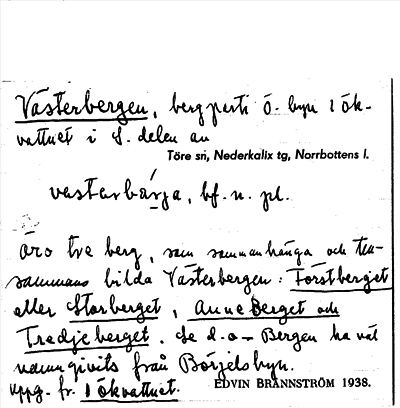 Västerbergen, bergparti ö. byn Lök-
vattnet i S. delen av
Töre sn, Nederkalix tg, Norrbottens l.
vestarbärja, bf. n. pl.
äro tre berg, som sammanhänga och till-
sammans bilda Västerbergen: Förstberget
eller Storberget, Anneberget och
Tredjeberget. Se d.o – Bergen ha väl
namngivits från Börjelsbyn.
Uppg. fr. Lökvattnet. EDVIN BRÄNNSTRÖM 1938.